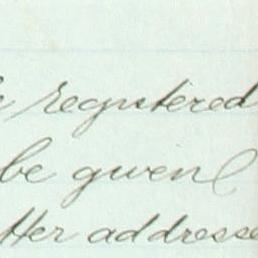 registered
be given
tter addresse